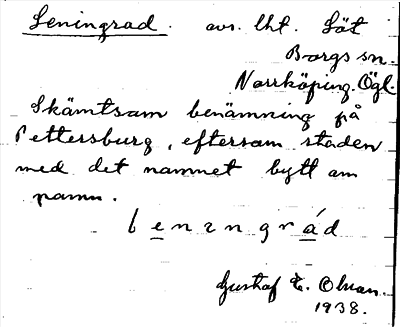 Leningrad. avs. lht. Löt
Borgs sn.
Norrköping. Ögl.
Skämtsam benämning på
Pettersburg, eftersom staden
med det namnet bytt om
namn.
lenıngrád
Gustaf E. Olvan.
1938.